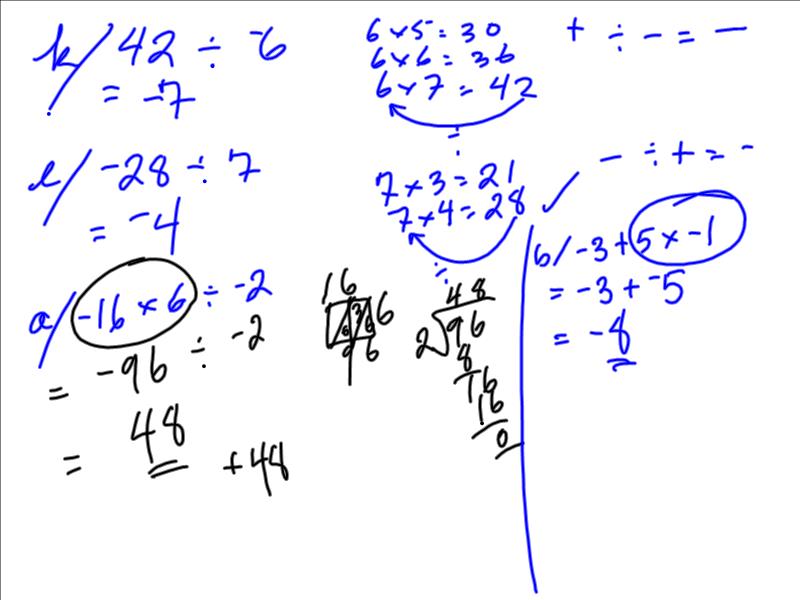 k/ 42 ÷ -6
= -7
6 x 5 = 30
6 x 6 = 36
6 x 7 = 42
÷
+ ÷ - = -
l/ -28 ÷ 7
= -4
7 x 3 = 21
7 x 4 = 28 ✓
÷
- ÷ + = -
a/ -16 x 6 ÷ -2
= -96 ÷ -2
= 48 +48
16
6 3 6 6
96
48
2 96
8
16
16
0
b/ -3 + 5 x -1
= -3 + -5
= -8